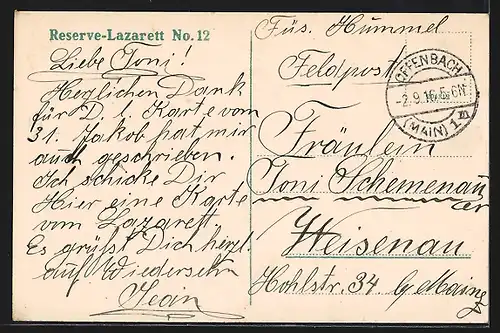 Reserve-Lazarett No. 12
Liebe Toni!
Herzlichen Dank
für D. l. Karte vom
31. Jakob hat mir
auch geschrieben.
Ich schicke Dir
Hier eine Karte
vom Lazarett.
Es grüßt Dich herzl.
auf Wiedersehn
Jean
Füs. Hummel
Feldpost
OFFENBACH
-2.9.16. 5-6N.
(MAIN) 1.
Fräulein
Toni Schemenauer
Weisenau
Hohlstr. 34 b/ Mainz